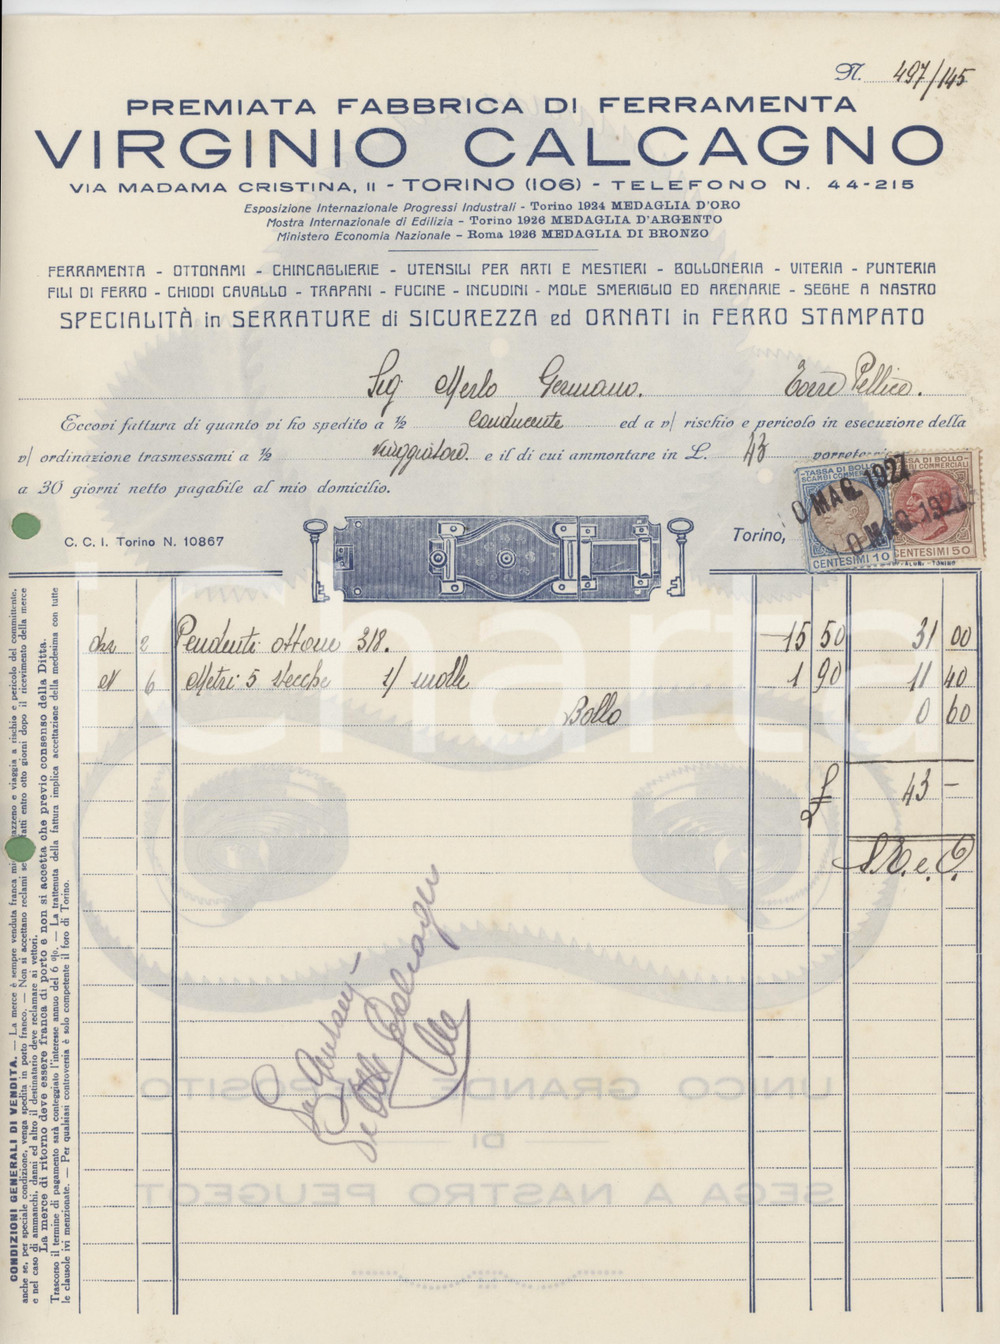 N. 497/145
PREMIATA FABBRICA DI FERRAMENTA
VIRGINIO CALCAGNO
VIA MADAMA CRISTINA, 11 - TORINO (106) - TELEFONO N. 44-215
Esposizione Internazionale Progressi Industrali - Torino 1924 MEDAGLIA D'ORO
Mostra Internazionale di Edilizia - Torino 1926 MEDAGLIA D'ARGENTO
Ministero Economia Nazionale - Roma 1926 MEDAGLIA DI BRONZO
FERRAMENTA - OTTONAMI - CHINCAGLIERIE - UTENSILI PER ARTI E MESTIERI - BOLLONERIA - VITERIA - PUNTERIA
FILI DI FERRO - CHIODI CAVALLO - TRAPANI - FUCINE - INCUDINI - MOLE SMERIGLIO ED ARENARIE - SEGHE A NASTRO
SPECIALITÀ in SERRATURE di SICUREZZA ed ORNATI in FERRO STAMPATO
Sig Merlo Germano. Torre Pellice.
Eccovi fattura di quanto vi ho spedito a 1/2 conducente ed a v/ rischio e pericolo in esecuzione della
v/ ordinazione trasmessami a 1/2 viaggiatore. e il di cui ammontare in L. 43
a 30 giorni netto pagabile al mio domicilio.
TASSA DI BOLLO
SCAMBI COMMERCIALI
CENTESIMI 10
TASSA DI BOLLO
COMMERCIALI
CENTESIMI 50
0 MAG. 1927
0 MAG. 192
C. C. I. Torino N. 10867
Torino,
dzz 2 Pendenti ottone 318. 15 50 31 00
N 6 Metri 5 molle 1 90 11 40
Bollo 0 60
£ 43 -
S. E. e. O.
CONDIZIONI GENERALI DI VENDITA. — La merce è sempre venduta franca mio magazzeno e viaggia a rischio e pericolo del committente,
anche se, per speciale condizione, venga spedita in porto franco. — Non si accettano reclami se fatti entro otto giorni dopo il ricevimento della merce
e nel caso di ammanchi, danni ed altro il destinatario deve reclamare ai vettori.
La merce di ritorno deve essere franca di porto e non si accetta che previo consenso della Ditta.
Trascorso il termine di pagamento sarà conteggiato l'interesse annuo del 6 %. — La trattenuta della fattura implica accettazione della medesima con tutte
le clausole ivi menzionate. — Per qualsiasi controversia è solo competente il foro di Torino.
UNICO GRANDE DEPOSITO
DI
SEGA A NASTRO PEUGEOT
iCharta